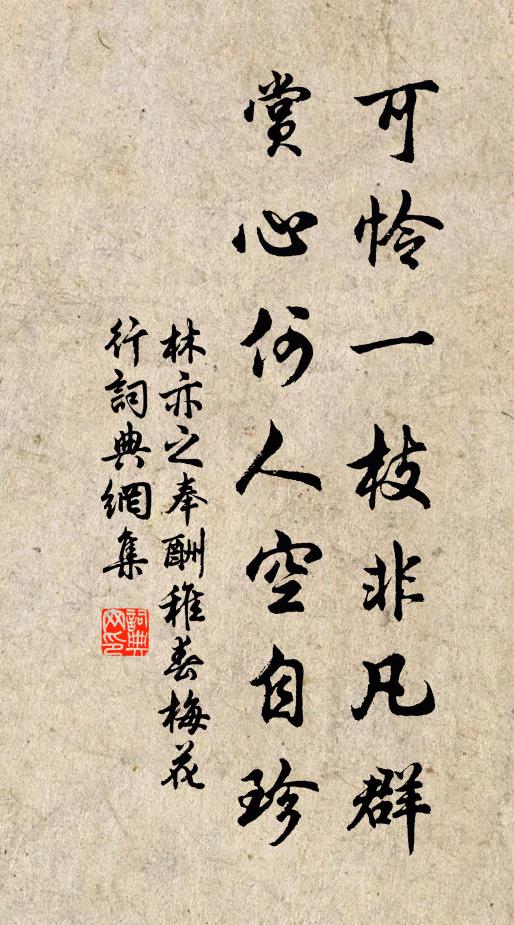 可怜一枝非凡群
赏心何人空自珍
林亦之奉酬稚春梅花
行詞典網集
詞典网印